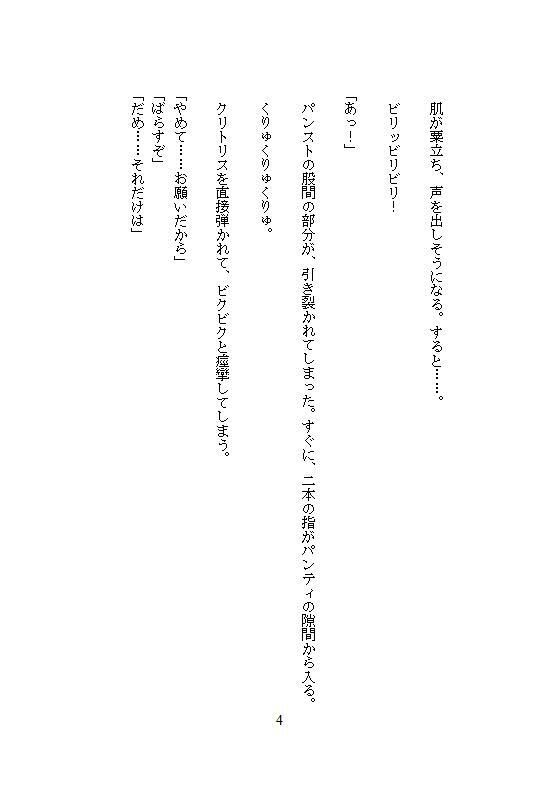 肌が粟立ち、声を出しそうになる。すると……。
ビリッビリビリ！
「あっ！」
パンストの股間の部分が、引き裂かれてしまった。すぐに、二本の指がパンティの隙間から入る。
くりゅくりゅくりゅ。
クリトリスを直接弾かれて、ビクビクと痙攣してしまう。
「やめて……お願いだから」
「ばらすぞ」
「だめ……それだけは」
4